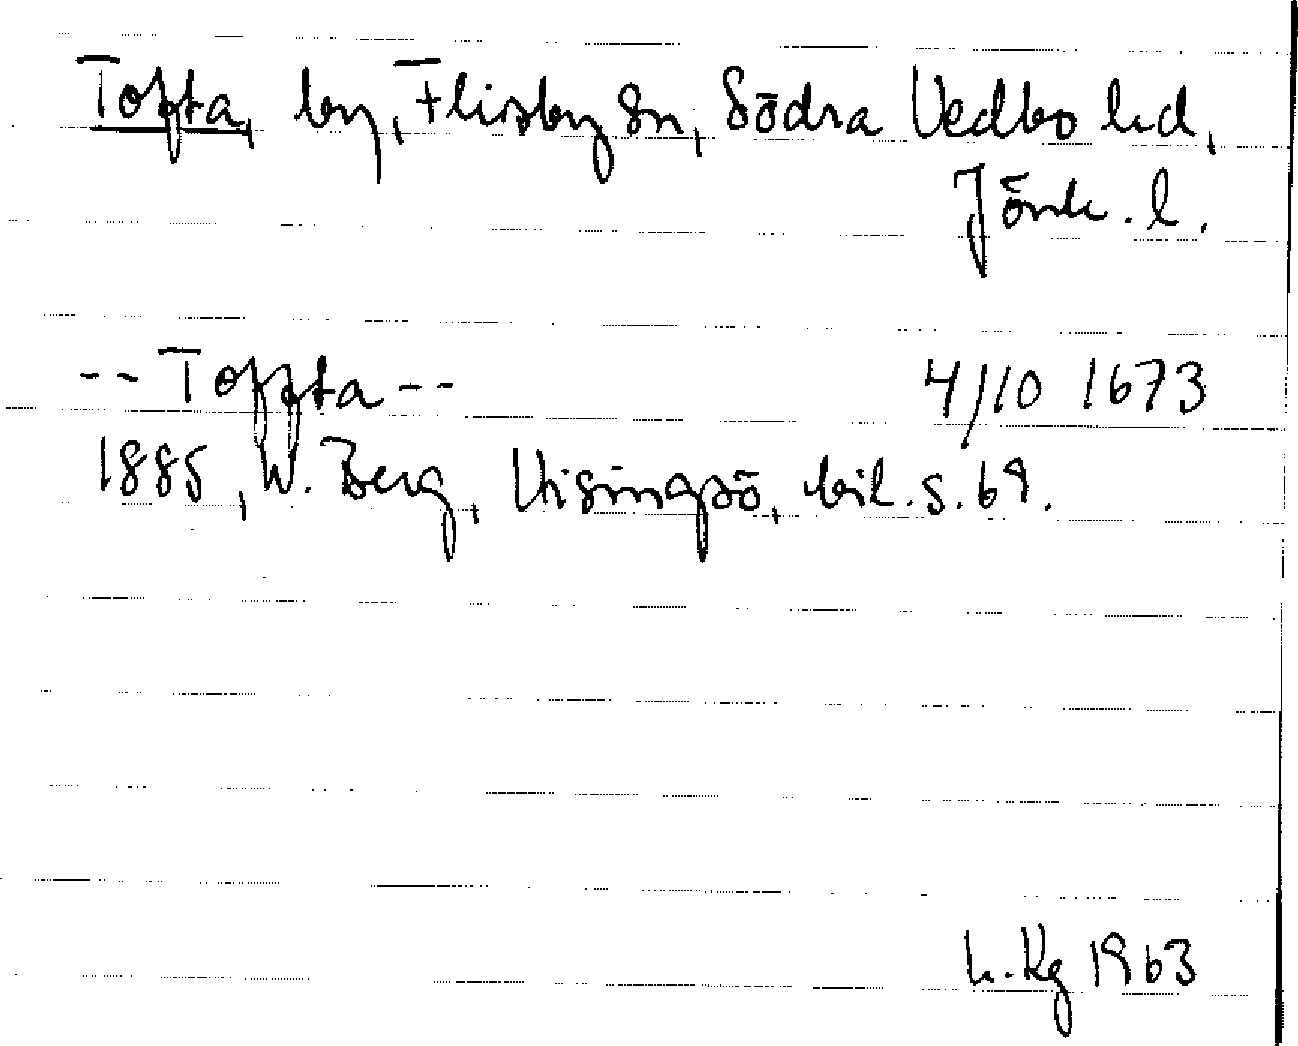 Tofta, by, Flisby sn, Södra Vedbo hd,
Jönk. l.
-- Toffta -- 4/10 1673
1885, W. Berg, Visingsö, bil. s. 69.
L. Kg 1963